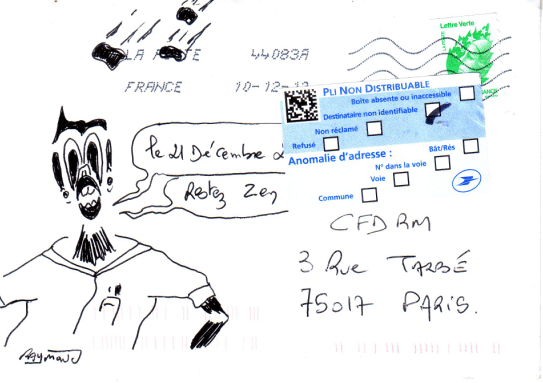 LA POSTE 44083A
FRANCE 10-12-12
Lettre Verte
PLI NON DISTRIBUABLE
Boîte absente ou inaccessible
Destinataire non identifiable
Non réclamé
Refusé
Anomalie d'adresse :
Bât/Rés
N° dans la voie
Voie
Commune
le 21 Décembre
Restez Zen
CFDRM
3 Rue TARBÉ
75017 PARIS.
RAYMOND